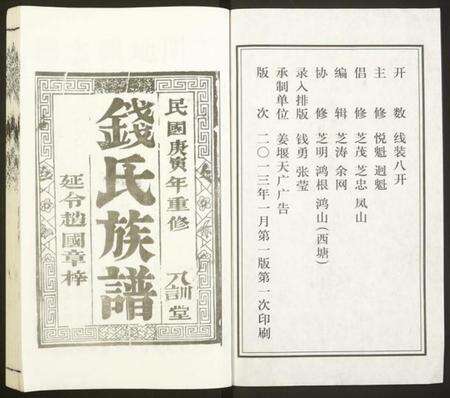 开　数　线装八开
主　修　悦魁　迥魁
倡　修　芝茂　芝忠　凤山
编　辑　芝涛　余网
协　修　芝明　鸿根　鸿山(西塘)
录入排版　钱勇　张莹
承制单位　姜堰天广广告
版　次　二〇一三年一月第一版第一次印刷
民國庚寅年重修
八訓堂
錢氏族譜
延令趙國章梓